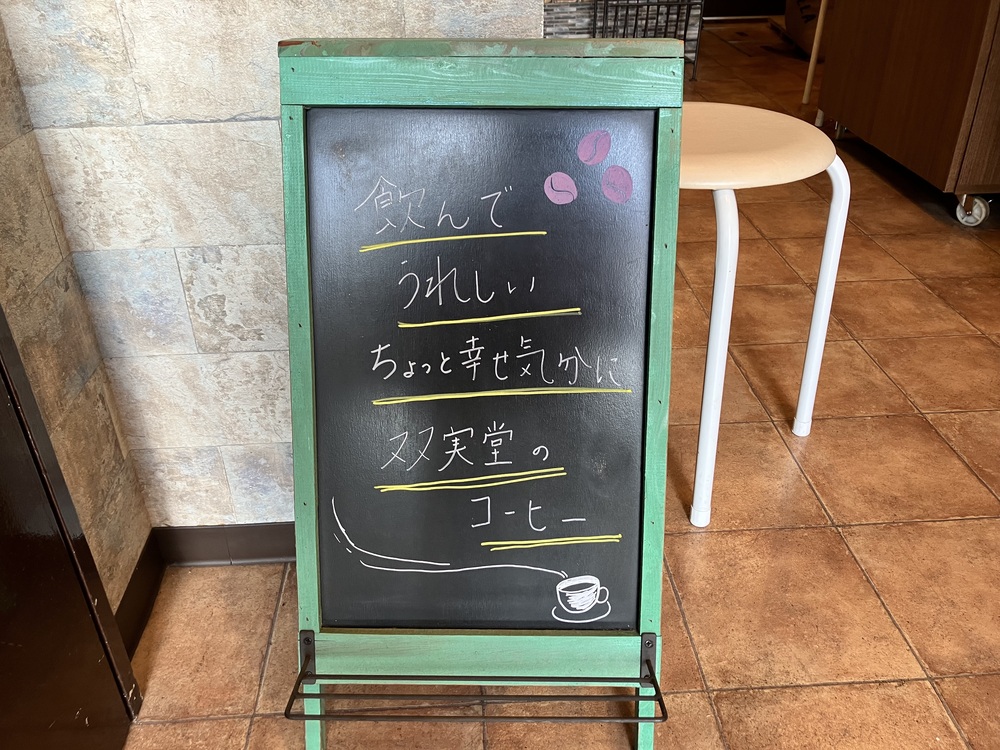 飲んで
うれしい
ちょっと幸せ気分に
双実堂の
コーヒー